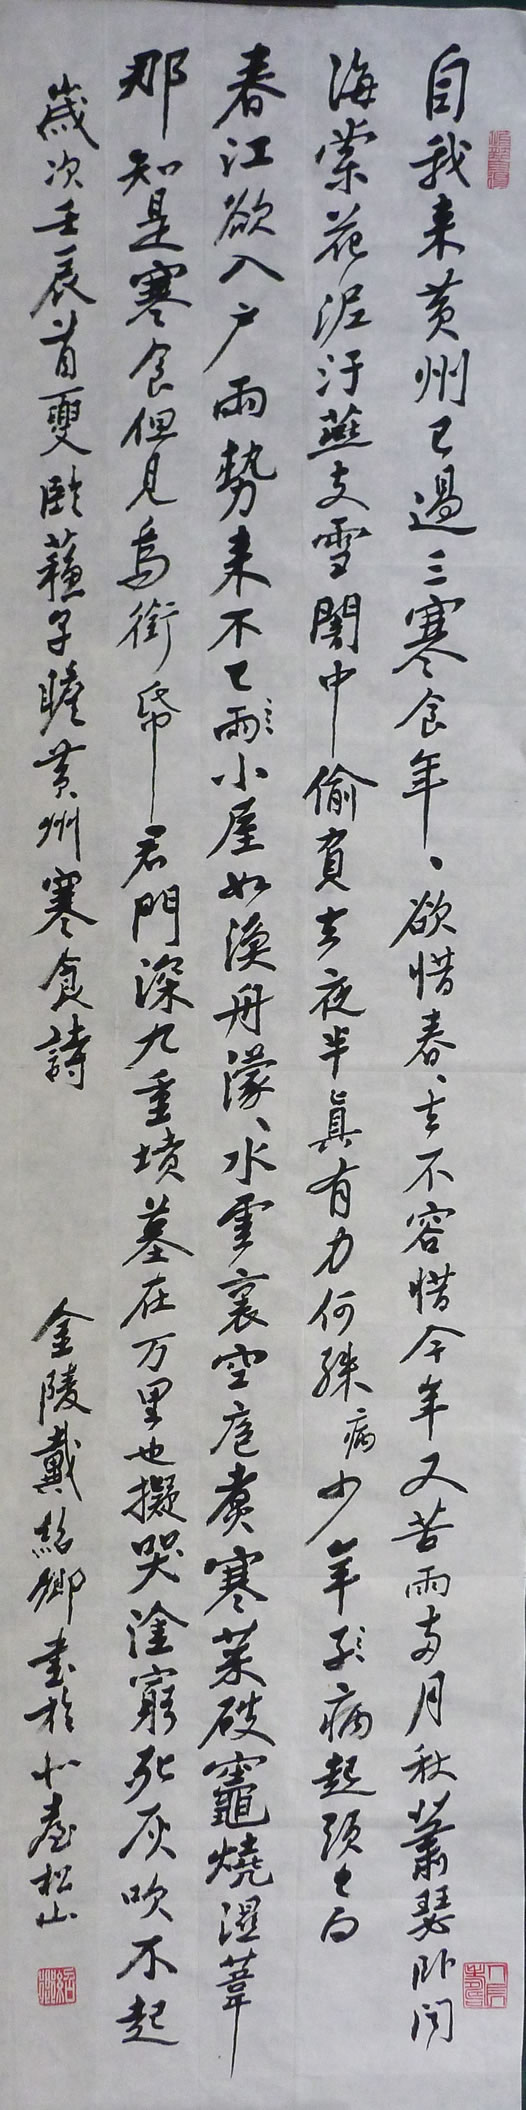 自我来黄州已過三寒食年、欲惜春、去不容惜今年又苦雨两月秋蕭瑟卧闻
海棠花泥汙燕支雪闇中偷負去夜半真有力何殊病少年子病起頭已白
春江欲入户雨勢来不已雨小屋如漁舟濛、水雲裏空庖煮寒菜破竈燒湿葦
那知是寒食但見烏銜帋君門深九重墳墓在万里也擬哭塗窮死灰吹不起
歲次壬辰首夏臨蘓子瞻黄州寒食詩
金陵戴紹卿書於北臺松山